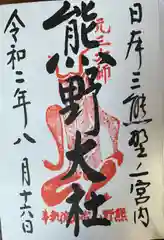 日本三熊野之一宮内
元三大師
熊野大社
令和二年八月十六日